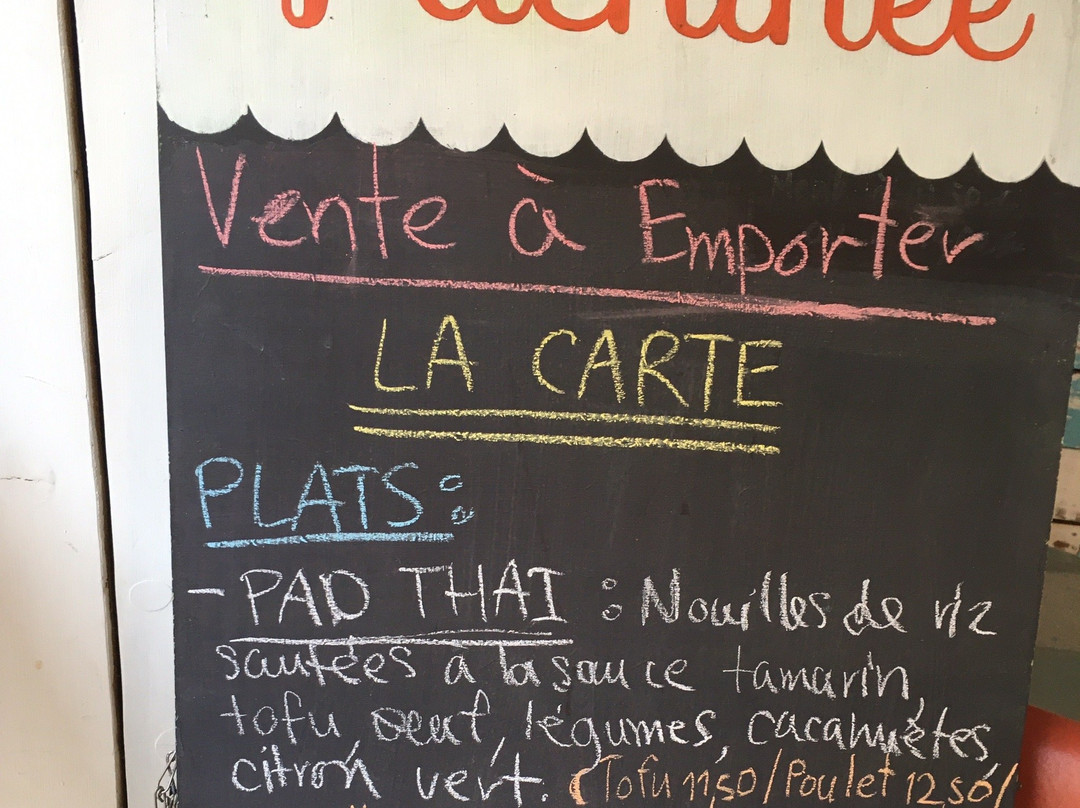 Vente à Emporter
LA CARTE
PLATS:
- PAD THAI : Nouilles de riz
sautées à la sauce tamarin,
tofu, oeuf, légumes, cacahuètes,
citron vert. (Tofu 11,50/Poulet 12,50/